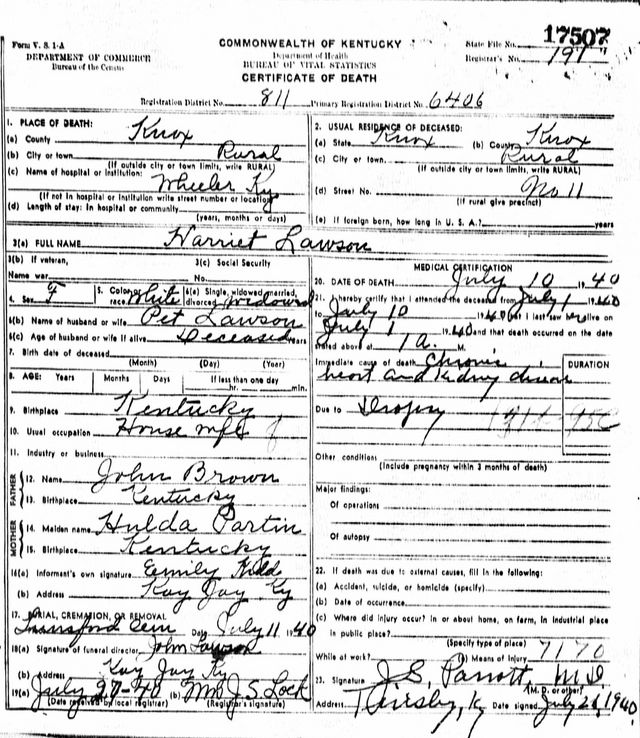 17507
Form V. S. 1-A
COMMONWEALTH OF KENTUCKY
State File No.
DEPARTMENT OF COMMERCE
Department of Health
Registrar's No. 191
Bureau of the Census
BUREAU OF VITAL STATISTICS
CERTIFICATE OF DEATH
Registration District No. 811 Primary Registration District No. 6406
1. PLACE OF DEATH:
(a) County Knox
(b) City or town Rural
(If outside city or town limits, write RURAL)
(c) Name of hospital or institution:
Wheeler Ky
(If not in hospital or institution write street number or location)
(d) Length of stay: In hospital or community
(years, months or days)
2. USUAL RESIDENCE OF DECEASED:
(a) State Knox (b) County Knox
(c) City or town Rural
(If outside city or town limits, write RURAL)
(d) Street No. No 11
(If rural give precinct)
(e) If foreign born, how long in U. S. A.? years
3(a) FULL NAME Harriet Lawson
3(b) If veteran, 3(c) Social Security
Name war No.
4. Sex F 5. Color or race White 6(a) Single, widowed, married, divorced widowed
6(b) Name of husband or wife Pet Lawson
6(c) Age of husband or wife if alive Deceased years
7. Birth date of deceased
(Month) (Day) (Year)
8. AGE: Years Months Days If less than one day
hr. min.
9. Birthplace Kentucky
10. Usual occupation House
11. Industry or business
FATHER
12. Name John Brown
13. Birthplace Kentucky
MOTHER
14. Maiden name Hulda Partin
15. Birthplace Kentucky
16(a) Informent's own signature Eemily
(b) Address Kay Jay Ky
17. BURIAL, CREMATION, OR REMOVAL
Date July 11 1940
18(a) Signature of funeral director John Lawson
(b) Address Kay Jay Ky
19(a) July 27-40 (b) Mrs J. S. Lock
(Date received by local registrar) (Registrar's signature)
MEDICAL CERTIFICATION
20. DATE OF DEATH July 10 1940
21. I hereby certify that I attended the deceased from July 1 1940
to July 10 1940 that I last saw alive on
July 1 1940 and that death occurred on the date
stated above at 1 a. M.
Immediate cause of death Chronic DURATION
heart and kidney disease
Due to Dropsy
Other conditions
(Include pregnancy within 3 months of death)
Major findings:
Of operations
Of autopsy
22. If death was due to external causes, fill in the following:
(a) Accident, suicide, or homicide (specify)
(b) Date of occurrence
(c) Where did injury occur? In or about home, on farm, in industrial place
in public place? 7170
(Specify type of place)
While at work? (e) Means of injury
23. Signature J. S. Parrott, M D
(M. D. or other)
Address Ky Date signed July 26, 1940